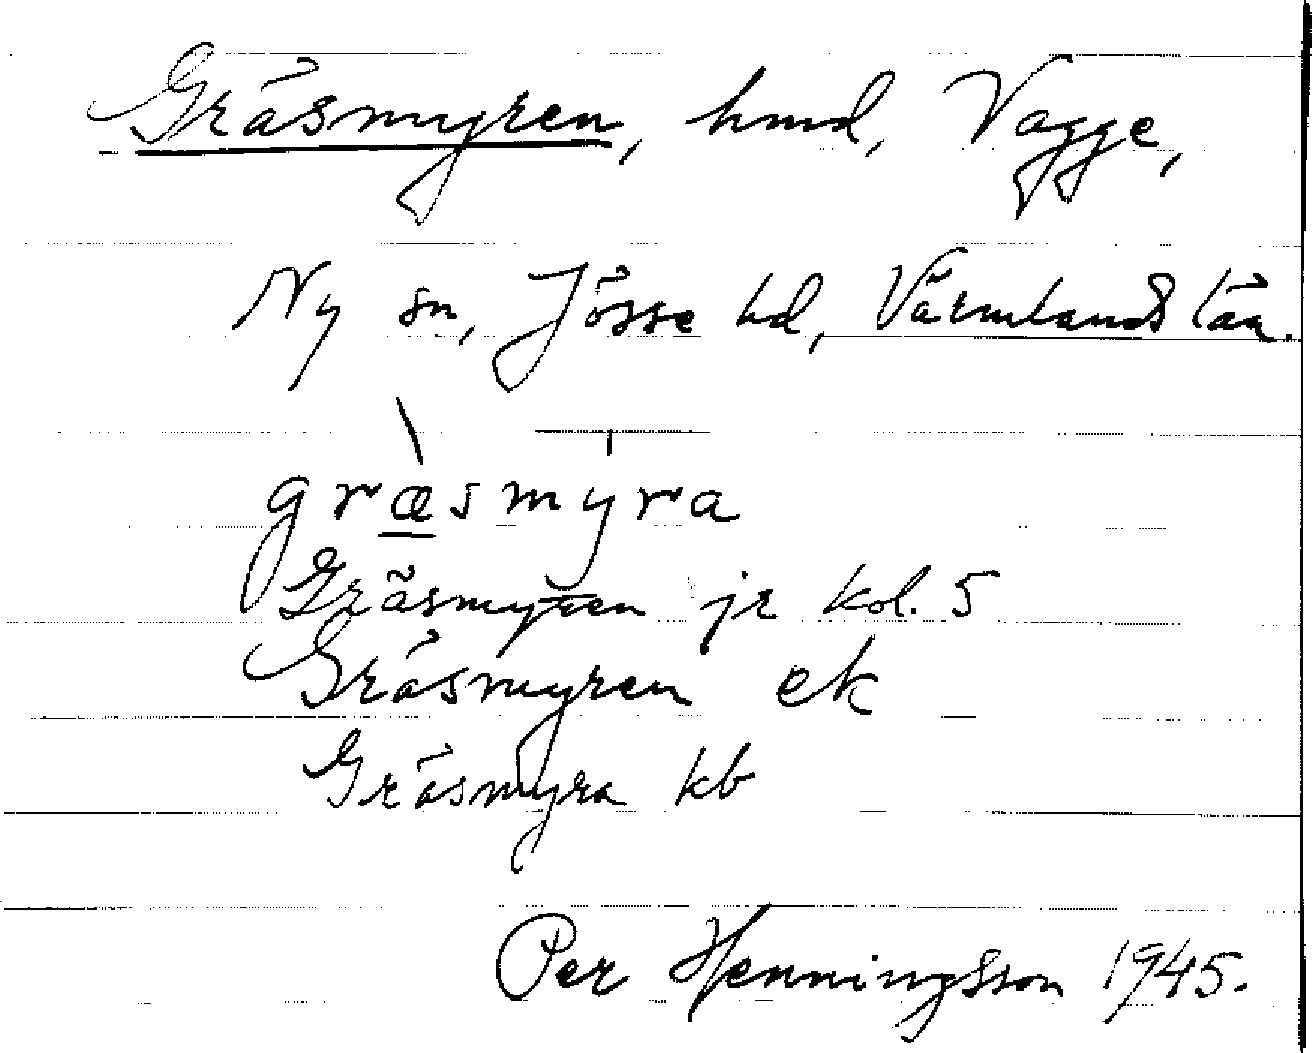 Gräsmyren, hmd, Vagge,
Ny sn, Jösse hd, Värmlands län.
græsmyra
Gräsmyren jr kol. 5
Gräsmyren ek
Gräsmyra kb
Per Henningsson 1945.